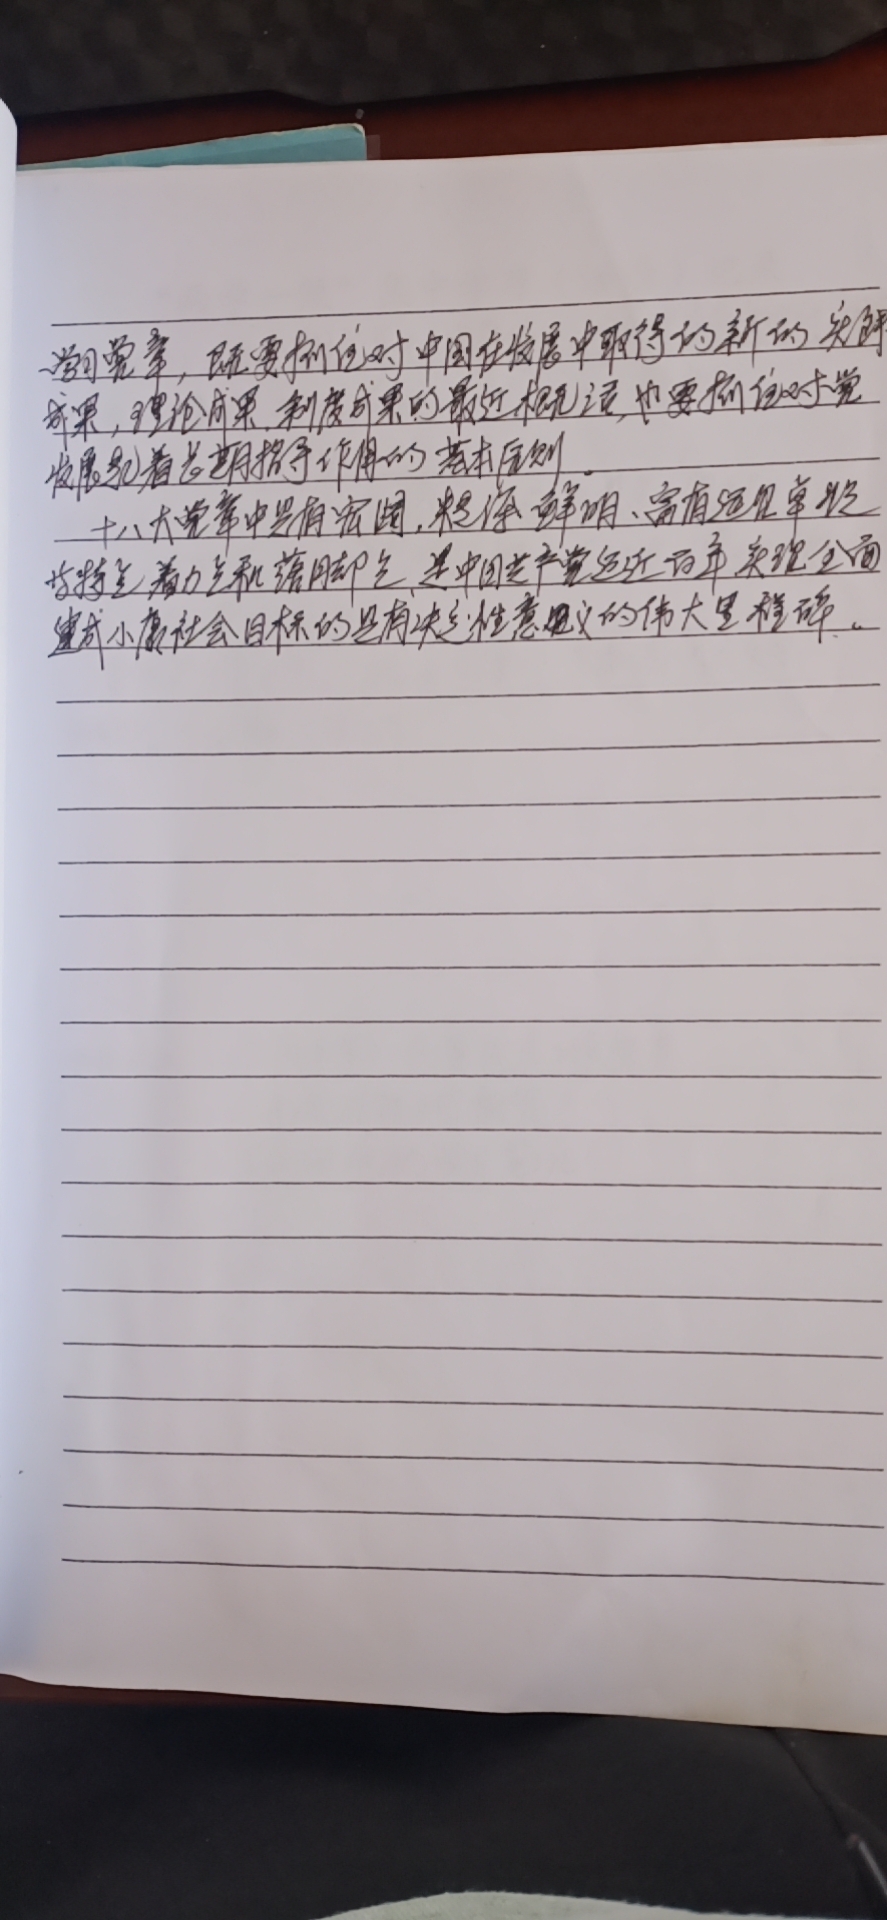 学习党章，既要抓住对中国在发展中取得的新的实践
成果，理论成果、制度成果的最近概括，也要抓住对党
发展起着长期指导作用的基本原则。
十八大党章中具有宏图，鲜明、富有远见卓识
特点着力点和落脚点，是中国共产党近百年实现全面
建成小康社会目标的具有决定性意义的伟大里程碑。